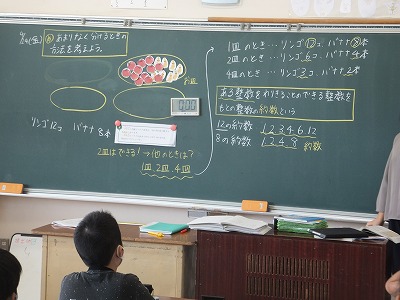 9/24(金) め あまりなく分けるときの
方法を考えよう。
お皿
リンゴ12コ バナナ8本
2皿はできる! → 他のときは?
1皿 2皿 4皿
1皿のとき…リンゴ⑫コ バナナ⑧本
2皿のとき…リンゴ6コ バナナ4本
4皿のとき…リンゴ3コ バナナ2本
ある整数をわりきることのできる整数を
もとの整数の約数という
12の約数 1 2 3 4 6 12
8の約数 1 2 4 8 約数